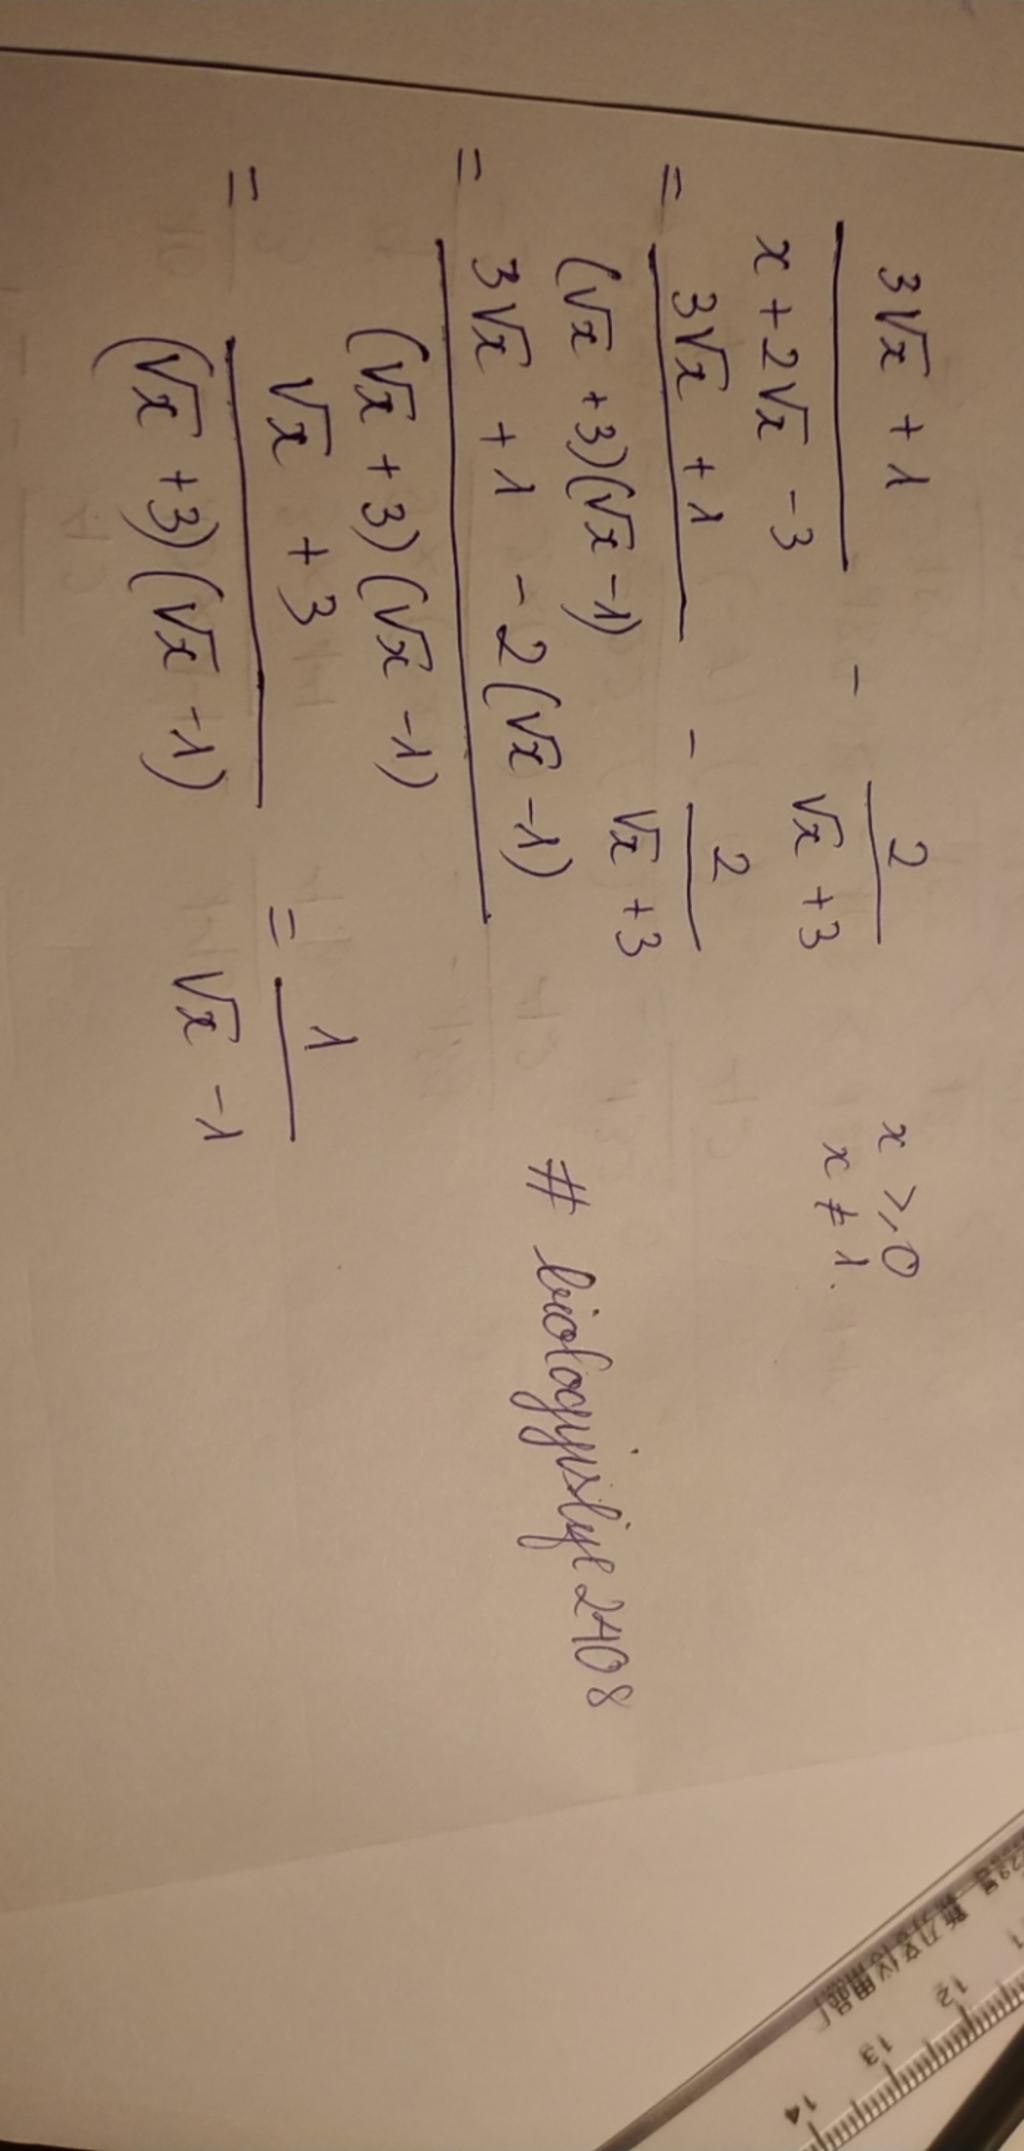 3√x + 1 / x + 2√x - 3 - 2 / √x + 3 x ⩾ 0
x ≠ 1.
= 3√x + 1 / (√x + 3)(√x - 1) - 2 / √x + 3
= 3√x + 1 - 2(√x - 1) / (√x + 3)(√x - 1)
# biologyislife2408
= √x + 3 / (√x + 3)(√x - 1) = 1 / √x - 1
新刀文仪用品厂
11 12 13 14